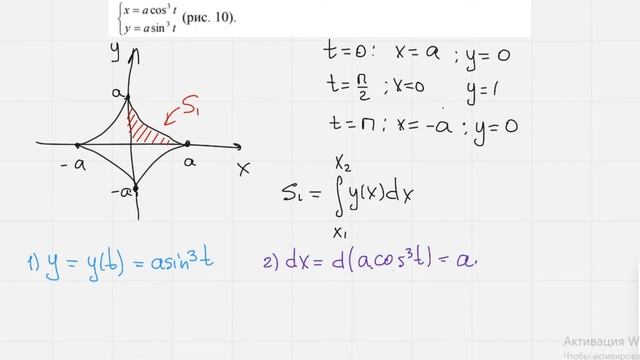 {x = a cos³ t
y = a sin³ t (рис. 10).
y
a
S₁
-a
a
x
-a
t=0: x=a ; y=0
t=π/2 ; x=0 y=1
t=π ; x=-a ; y=0
S₁ = ∫ₓ₁ˣ² y(x)dx
1) y = y(t) = asin³t
2) dx = d(a cos³t) = a.
Активация W
Чтобы активировать